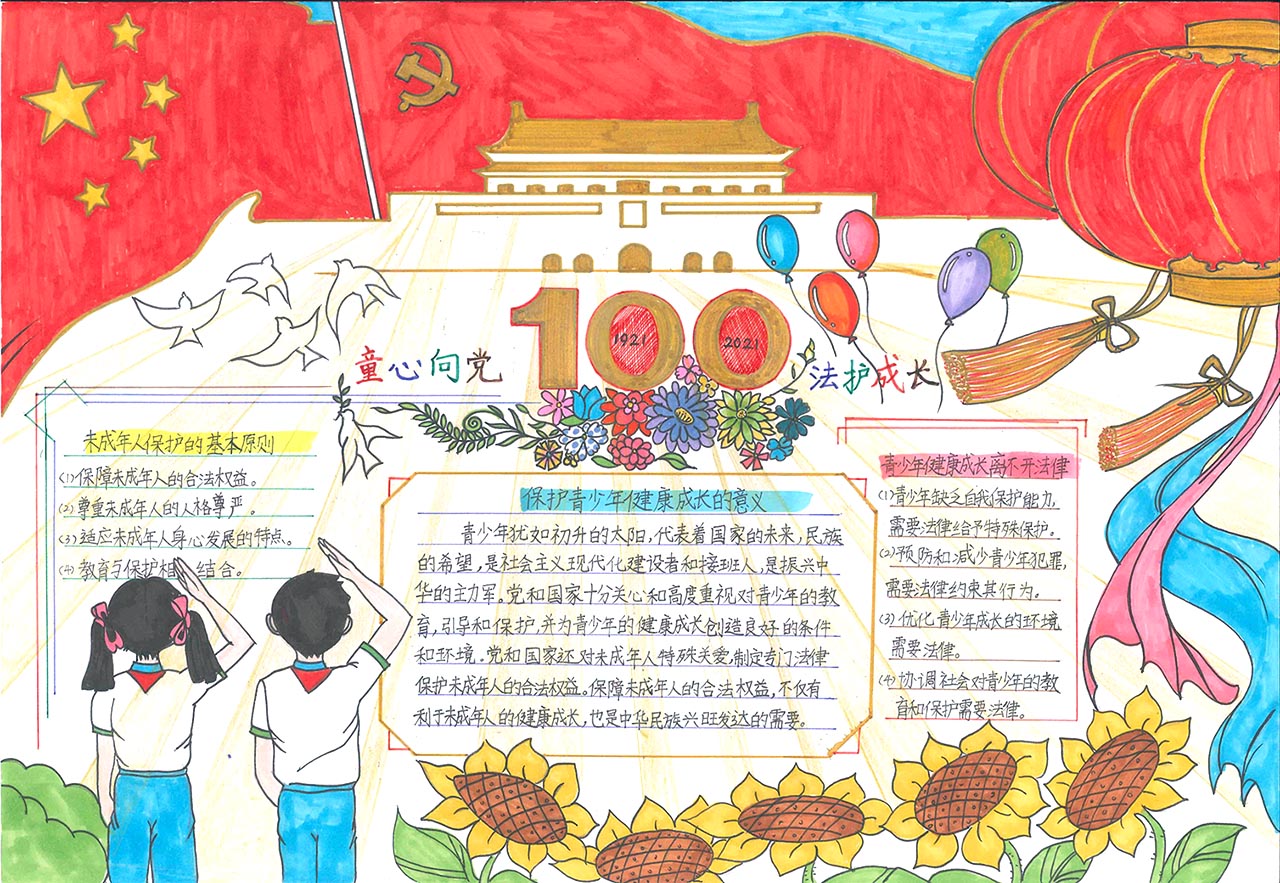 童心向党
100
1921
2021
法护成长
未成年人保护的基本原则
(1)保障未成年人的合法权益。
(2)尊重未成年人的人格尊严。
(3)适应未成年人身心发展的特点。
(4)教育与保护相 结合。
保护青少年健康成长的意义
青少年犹如初升的太阳,代表着国家的未来,民族
的希望,是社会主义现代化建设者和接班人,是振兴中
华的主力军。党和国家十分关心和高度重视对青少年的教
育,引导和保护,并为青少年的健康成长创造良好的条件
和环境.党和国家还对未成年人特殊关爱,制定专门法律
保护未成年人的合法权益。保障未成年人的合法权益,不仅有
利于未成年人的健康成长,也是中华民族兴旺发达的需要。
青少年健康成长离不开法律
(1)青少年缺乏自我保护能力,
需要法律给予特殊保护。
(2)预防和减少青少年犯罪,
需要法律约束其行为。
(3)优化青少年成长的环境
需要法律。
(4)协调社会对青少年的教
育和保护需要法律。